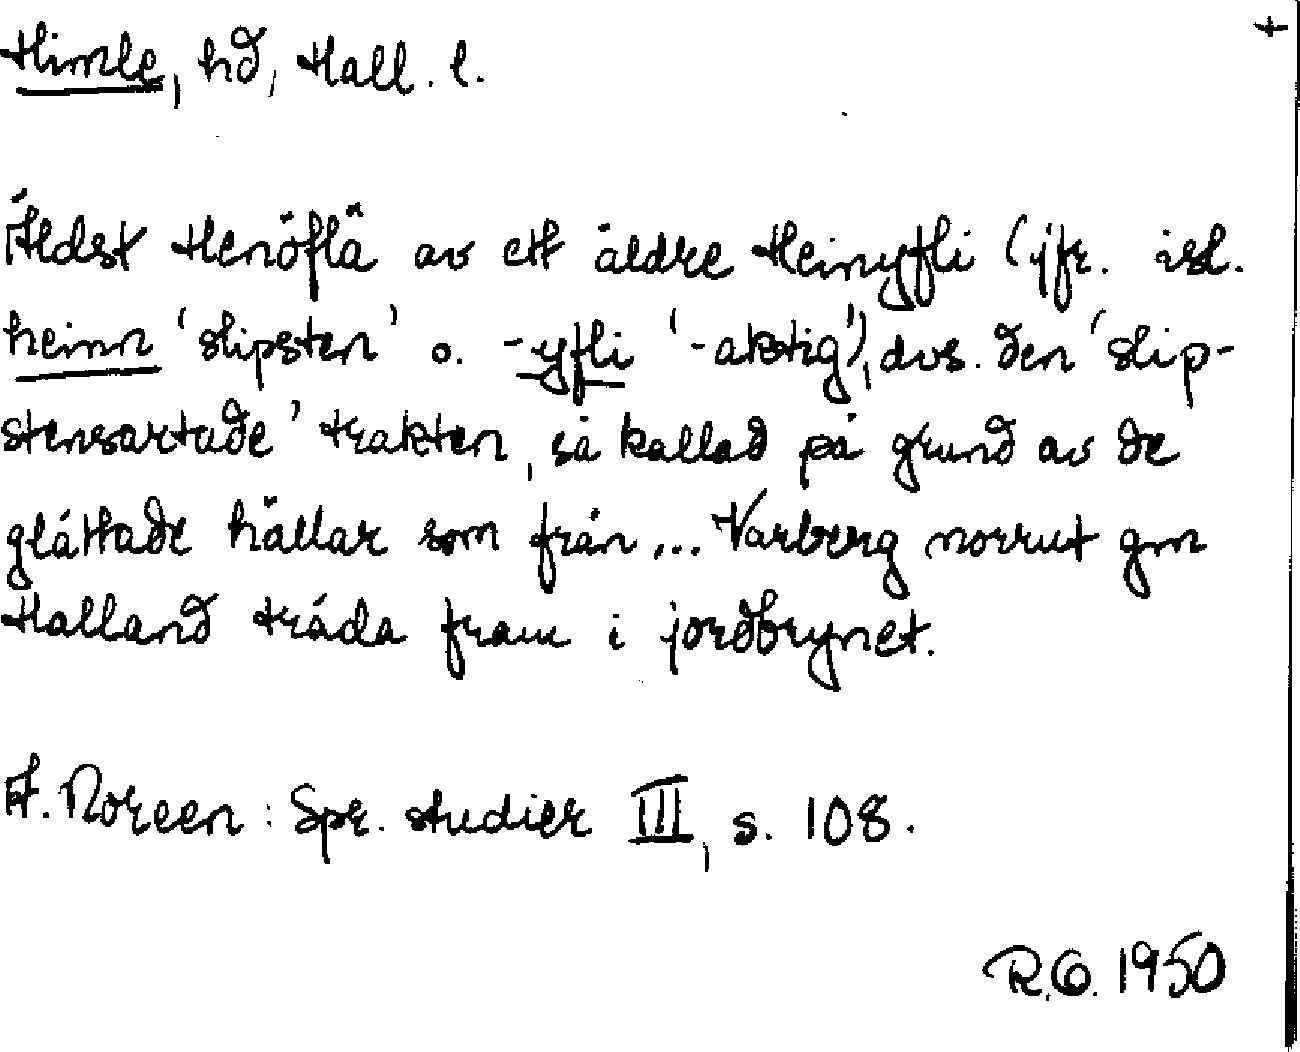 +
Himle, hd, Hall. l.
Äldst Henöflä av ett äldre Heinyfli (jfr. isl.
heinn 'slipsten' o. -yfli '-aktig'), dvs. den 'slip-
stensartade' trakten, så kallad på grund av de
glättade hällar som från ... Varberg norrut gm
Halland träda fram i jordbrynet.
A. Noreen: Spr. studier III, s. 108.
R.O. 1950